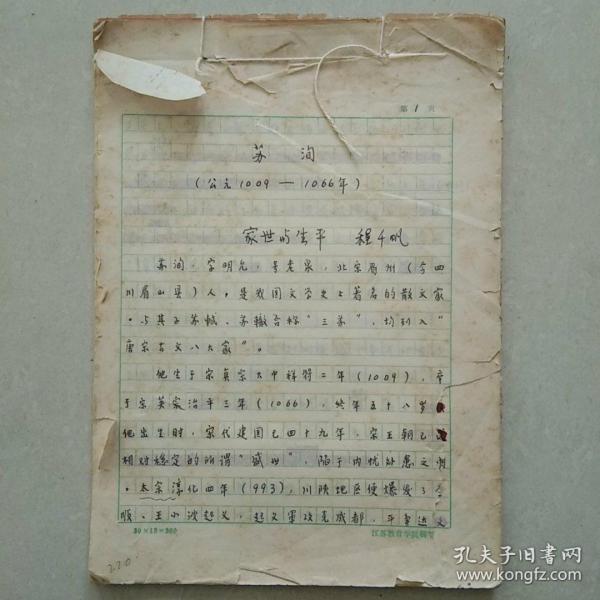 第1页
苏洵
(公元1009—1066年)
家世与生平 程千帆
苏洵,字明允,号老泉,北宋眉州(今四
川眉山县)人,是我国文学史上著名的散文家
。与其子苏轼、苏辙合称"三苏",均列入"
唐宋古文八大家"。
他生于宋真宗大中祥符二年(1009),卒
于宋英宗治平三年(1066),终年五十八岁
他出生时,宋代建国已四十九年,宋王朝已
相对稳定的所谓"盛世",陷于内忧外患之
。太宗淳化四年(993),川陕地区便爆发了李
顺、王小波起义,起义军攻克成都,
30×15=300
江苏教育学院
220.
孔夫子旧书网
www.kongfz.com